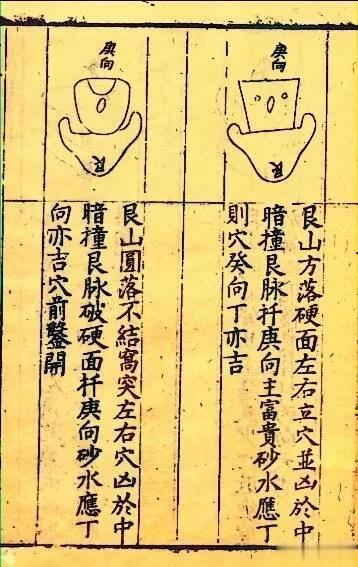 庚向
艮
艮山方落硬面左右立穴並凶於中
暗撞艮脉扦庚向主富貴砂水應丁
則穴癸向丁亦吉
庚向
艮
艮山圓落不結窩突左右穴凶於中
暗撞艮脉破硬面扦庚向砂水應丁
向亦吉穴前鑿開